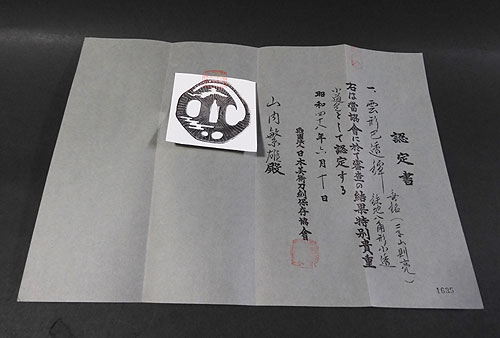 認定書
一、雲形巴透鐔 無銘(二子山則亮)
鉄地八角形小透
右は當協會に於て審査の結果特別貴重
小道具として認定する
昭和四十八年六月十日
財団法人日本美術刀剣保存協會
山内繁雄殿
1635